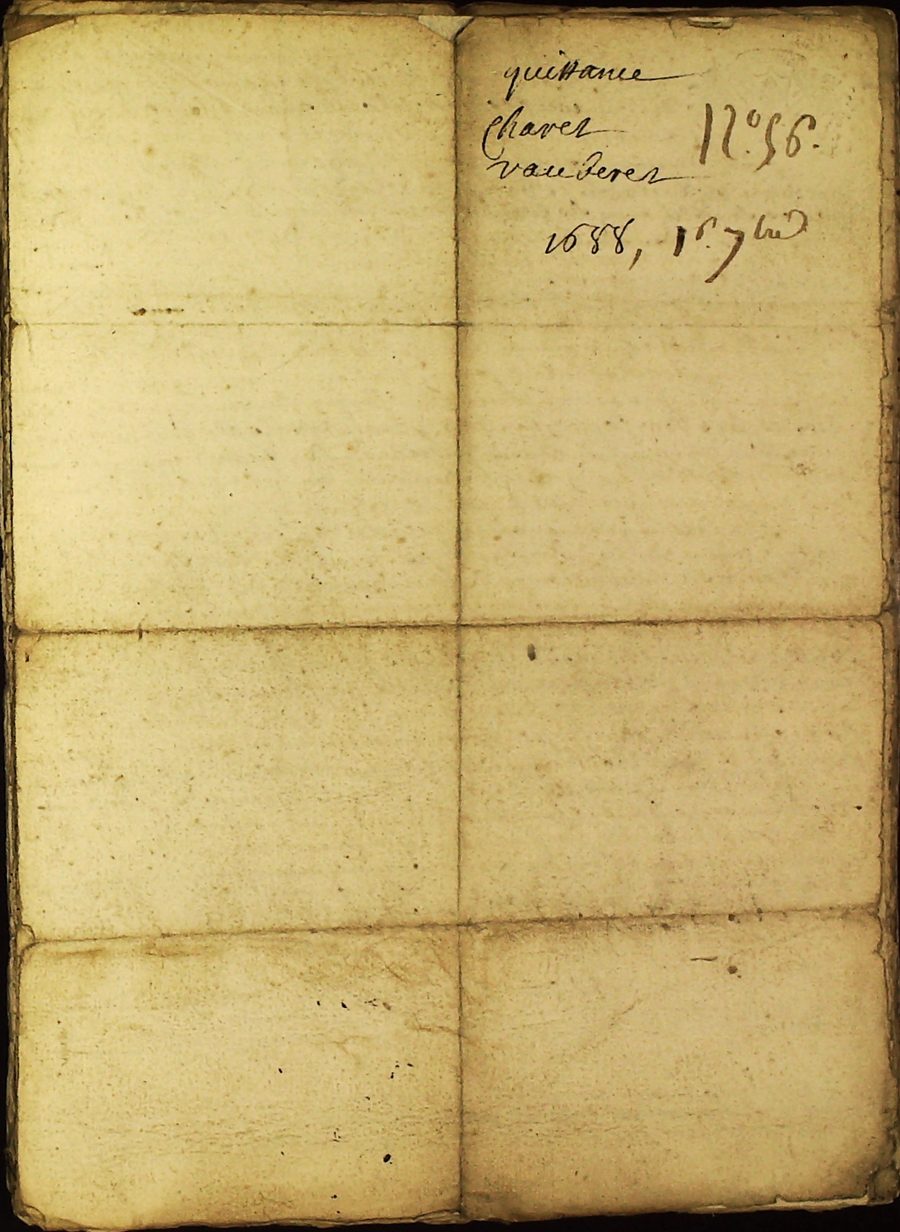 quittance
Charet
vauderet
N.o 56.
1688, 16. 7bre